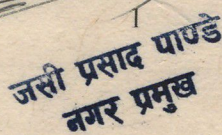 जसी प्रसाद पाण्डे
नगर प्रमुख